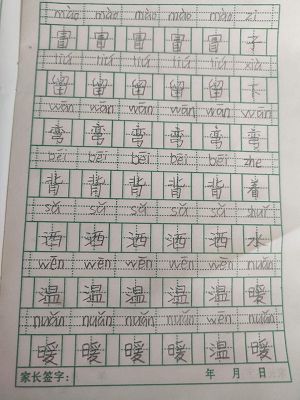 mào mào mào mào mào zi
冒 冒 冒 冒 冒 子
liú liú liú liú liú xià
留 留 留 留 留 下
wān wān wān wān wān wān
弯 弯 弯 弯 弯 弯
bēi bēi bēi bēi bēi zhe
背 背 背 背 背 着
sǎ sǎ sǎ sǎ sǎ shuǐ
洒 洒 洒 洒 洒 水
wēn wēn wēn wēn wēn nuǎn
温 温 温 温 温 暖
nuǎn nuǎn nuǎn nuǎn wēn nuǎn
暖 暖 暖 暖 温 暖
家长签字: 年 月 日